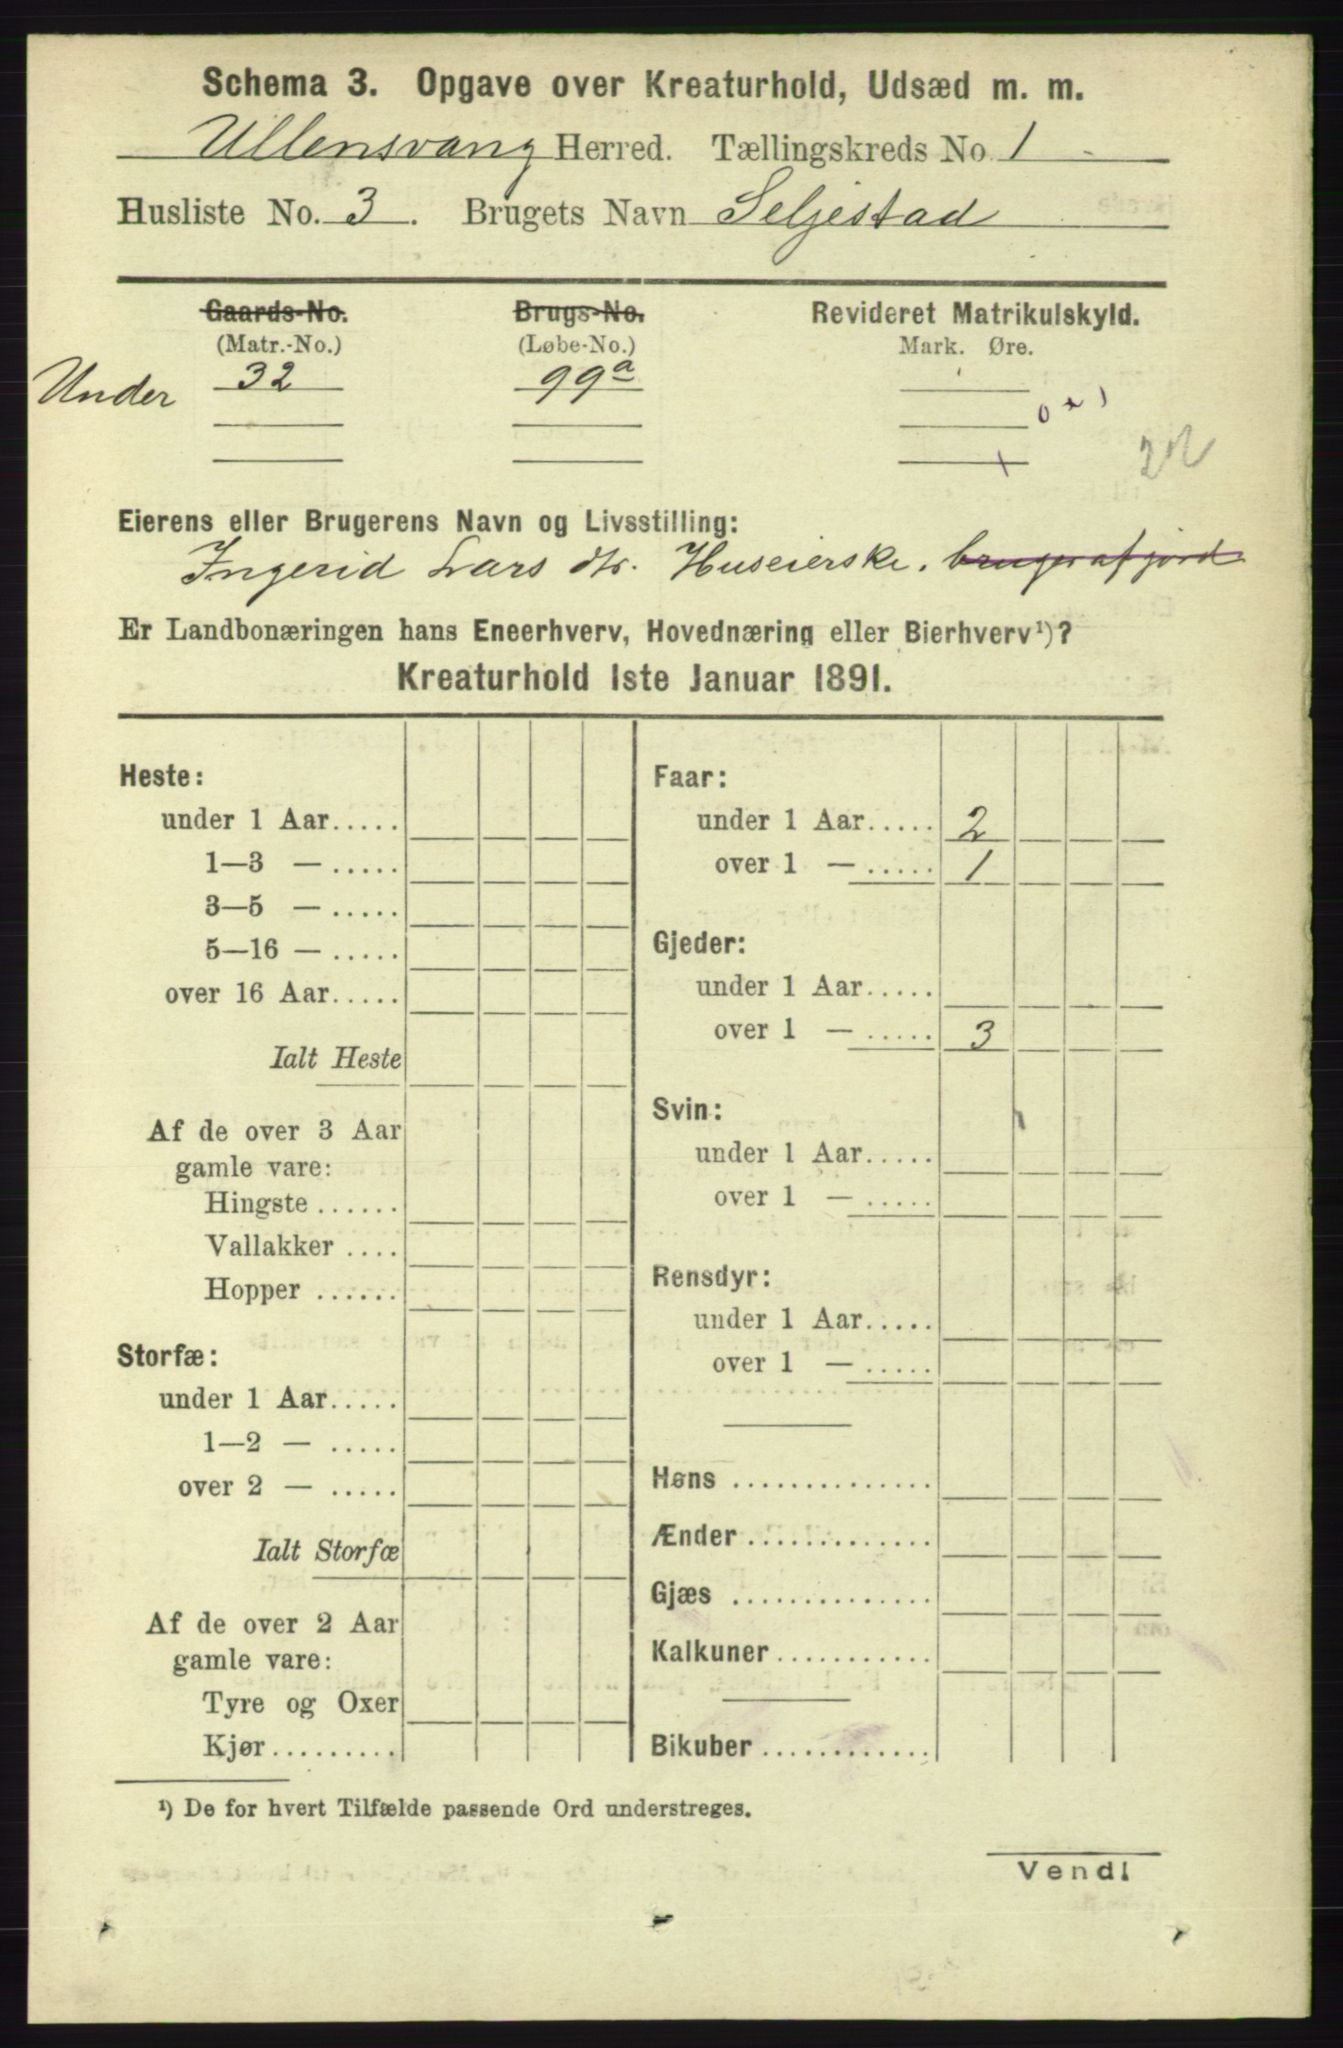 Schema 3. Opgave over Kreaturhold, Udsæd m. m.
Ullensvang Herred. Tællingskreds No. 1
Husliste No. 3. Brugets Navn Seljestad
Gaards-No. Brugs-No. Revideret Matrikulskyld.
(Matr.-No.) (Løbe-No.) Mark. Øre.
Under 32 99a
0 + 1
22
Eierens eller Brugerens Navn og Livsstilling:
Ingerid Lars dtr. Huseierske. bruger af jord
Er Landbonæringen hans Eneerhverv, Hovednæring eller Bierhverv¹)?
Kreaturhold 1ste Januar 1891.
Heste:
under 1 Aar.....
1—3 — .....
3—5 — .....
5—16 — .....
over 16 Aar.....
Ialt Heste
Af de over 3 Aar
gamle vare:
Hingste ......
Vallakker ....
Hopper ......
Storfæ:
under 1 Aar.....
1—2 — .....
over 2 — .....
Ialt Storfæ
Af de over 2 Aar
gamle vare:
Tyre og Oxer
Kjør.........
Faar:
under 1 Aar..... 2
over 1 — ..... 1
Gjeder:
under 1 Aar.....
over 1 — ..... 3
Svin:
under 1 Aar.....
over 1 — .....
Rensdyr:
under 1 Aar.....
over 1 — .....
Høns ..............
Ænder.............
Gjæs ..............
Kalkuner...........
Bikuber............
¹) De for hvert Tilfælde passende Ord understreges.
Vend!